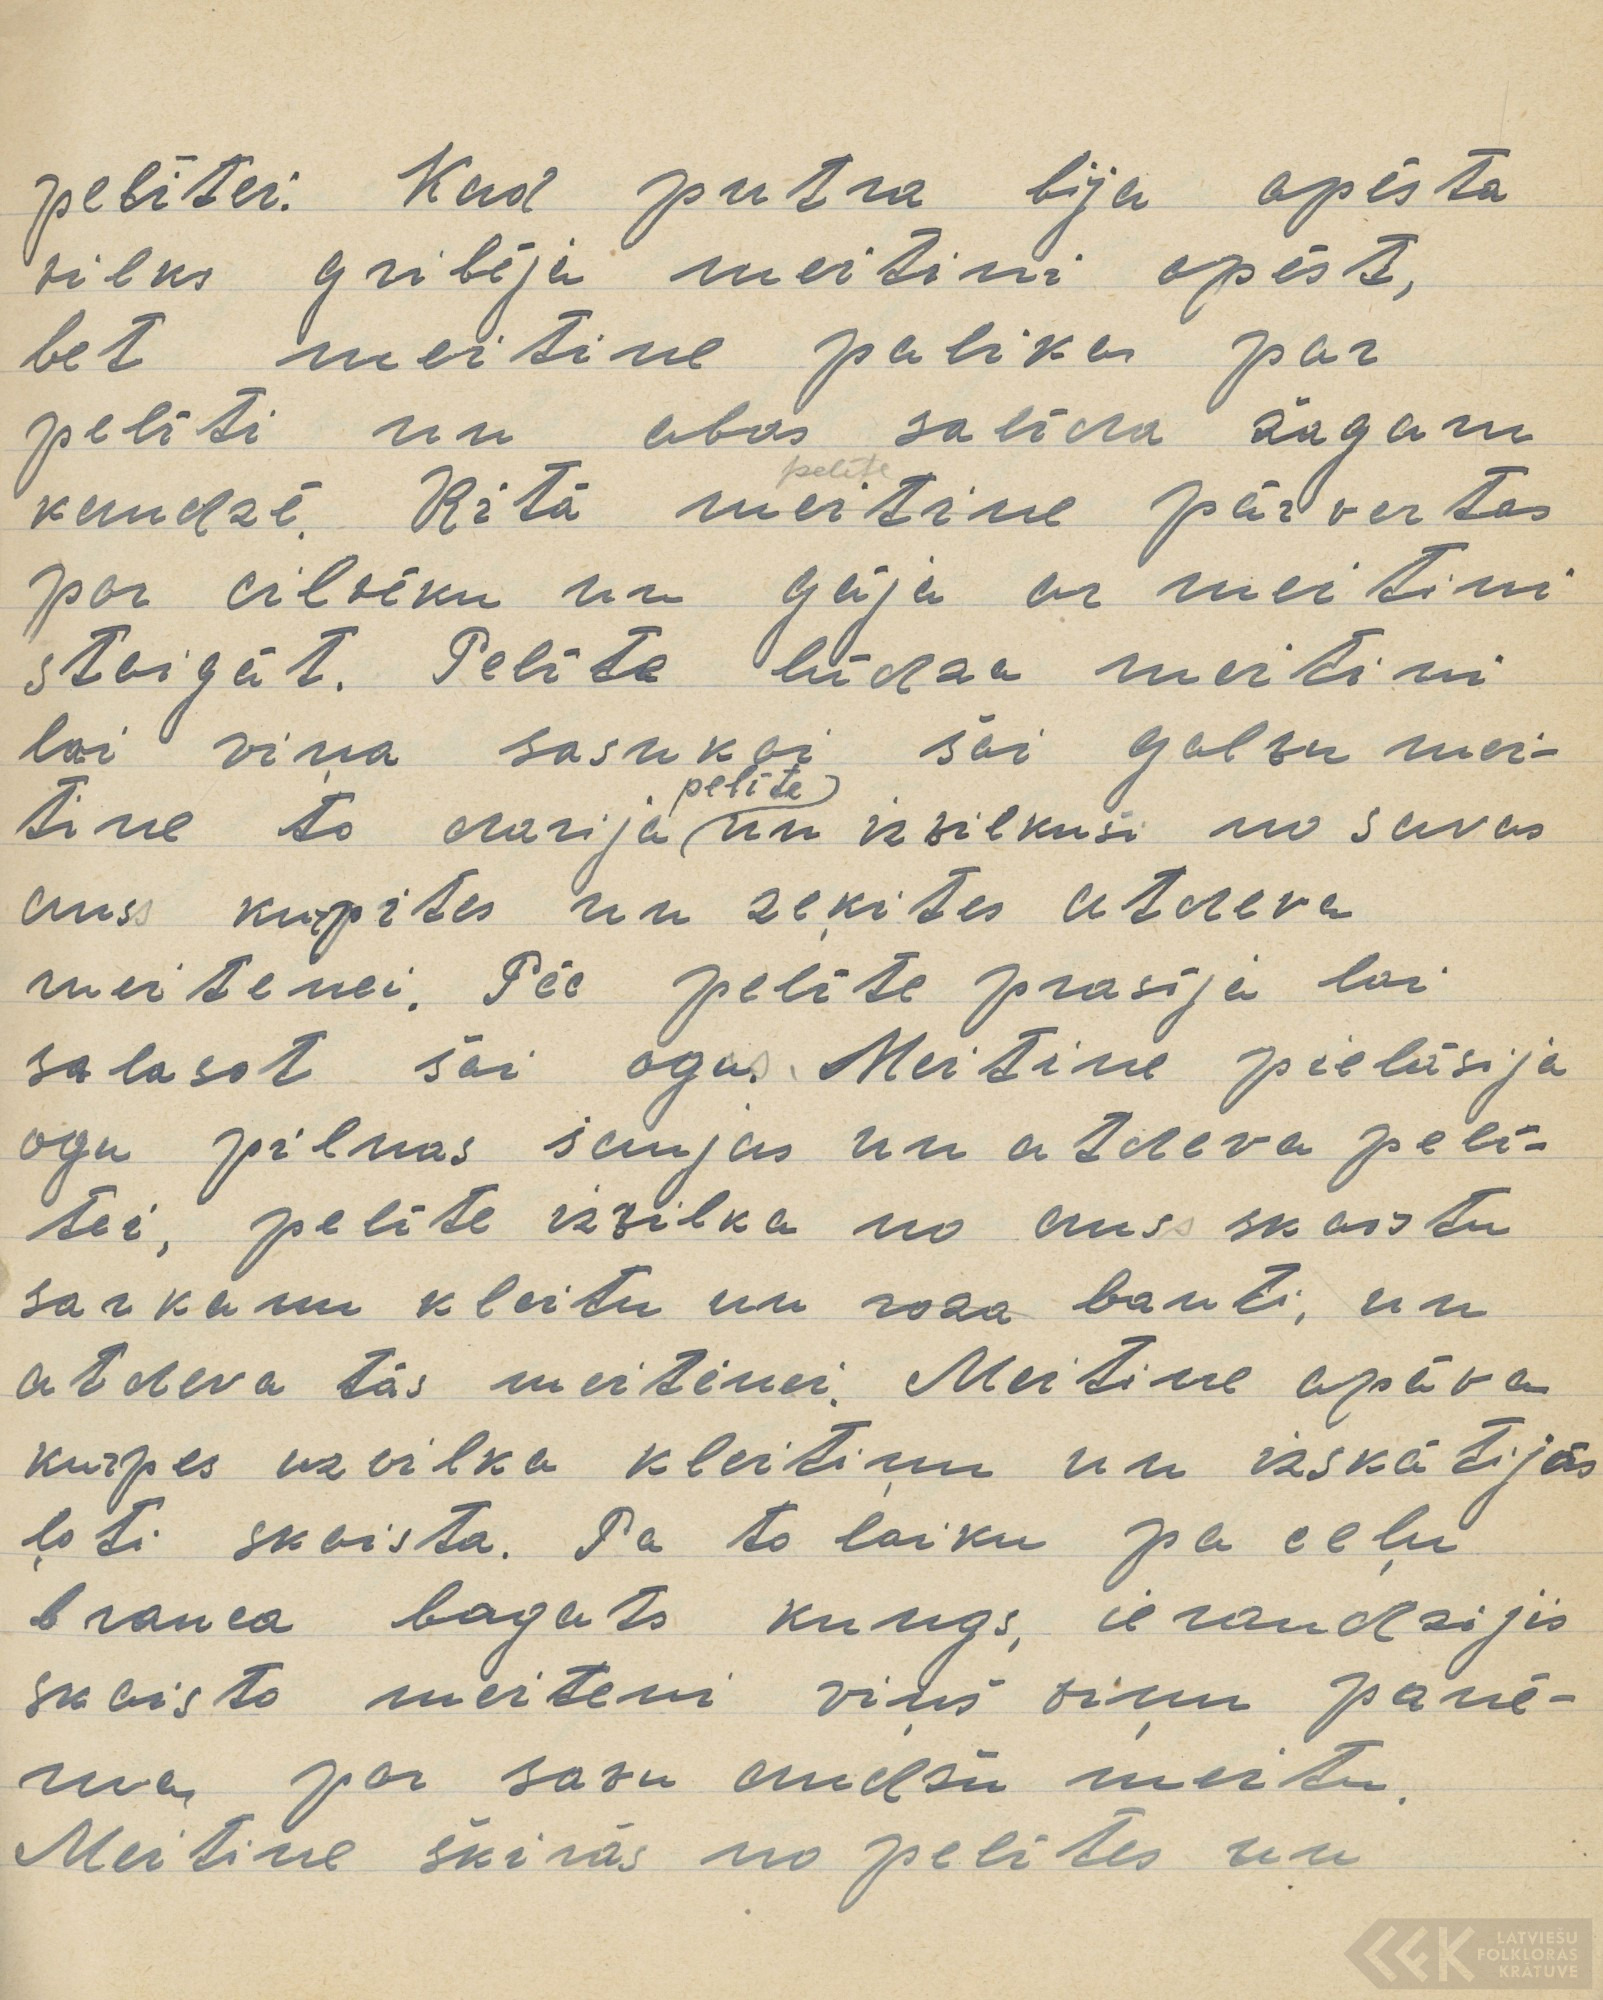 pelītei. Kad putra bija apēsta
vilks gribēja meitini apēst,
bet meitine palika par
pelīti un abas salīda žagaru
kaudzē. Ritā meitine pārvertās
pelīte
par cilvēku un gāja ar meitini
staigāt. Pelīte lūdza meitini
lai viņa sasukāi šāi galvu mei-
tine to darija un izvilkusi no savas
pelīte
auss kurpites un zeķites atdeva
meitenei. Pēc pelīte prasīja lai
salasot šāi ogas. Meitine pielāsija
ogu pilnas saujas un atdeva pelī-
tei, pelīte izvilka no auss skaistu
sarkanu kleitu un roza banti, un
atdeva tās meitinei. Meitine apāva
kurpes uzvilka kleitiņu un izskātijās
ļoti skaista. Pa to laiku pa ceļu
brauca bagāts kungs, ieraudzijis
skaisto meiteni viņš viņu paņē-
ma par savu audžu meitu.
Meitine šķirās no pelītes un
LATVIEŠU
FOLKLORAS
KRĀTUVE